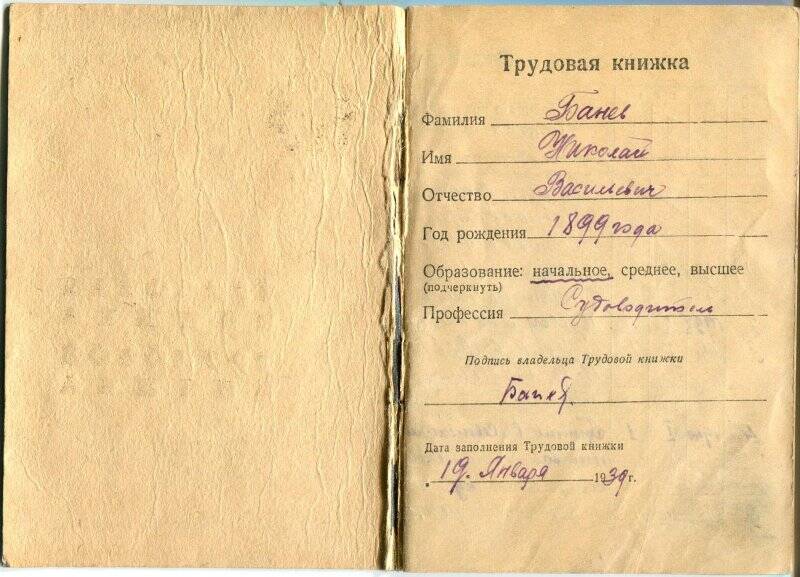 Трудовая книжка
Фамилия Банев
Имя Николай
Отчество Васильевич
Год рождения 1899 года
Образование: начальное, среднее, высшее
(подчеркнуть)
Профессия Судоводитель
Подпись владельца Трудовой книжки
Банев
Дата заполнения Трудовой книжки
19. Января 1939 г.